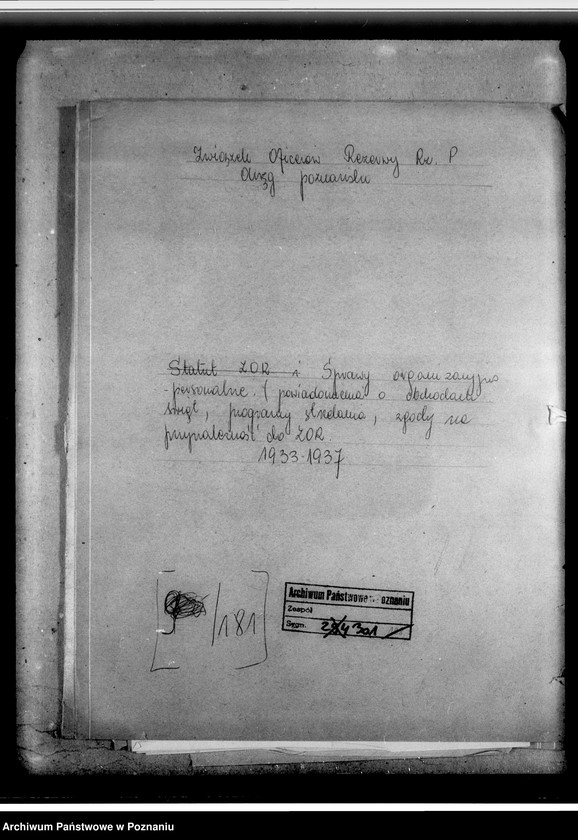 Związek Oficerów Rezerwy Rz. P
Okręg poznański
Statut ZOR i Sprawy organizacyjno
-personalne / powiadomienia o obchodach
świąt, programy strzelania, zgody na
przynależność do ZOR
1933-1937
/181
Archiwum Państwowe w Poznaniu
Zespół
Sygn. 301
Archiwum Państwowe w Poznaniu